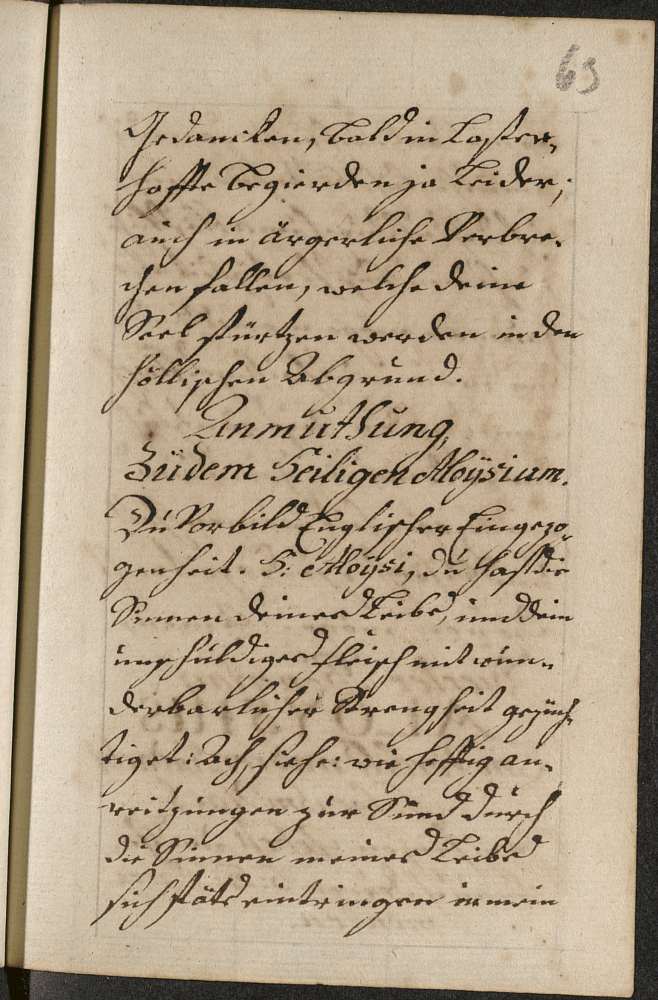 63
Gedancken, bald in Laster-
haffte Begierden ja leider,
auch in ärgerliche Verbre-
chen fallen, welche deine
Seel stürtzen werden in den
höllischen Abgrund.
Anmuthung
Zu dem Heiligen Aloÿsium.
Du Vorbild Englischer Eingezo-
genheit. H: Aloÿsi, du hast die
Sinnen deines Leibs, und dein
unschuldiges Fleisch mit wun-
derbarlicher Strengheit gezüch-
tiget: Ach, siehe: wie hefftig an-
reitzungen zur Sünd durch
die Sinnen meines Leibs
sich stäts eintringen in mein